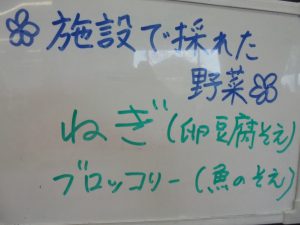 施設で採れた
野菜
ねぎ(卵豆腐そえ)
ブロッコリー(魚のそえ)